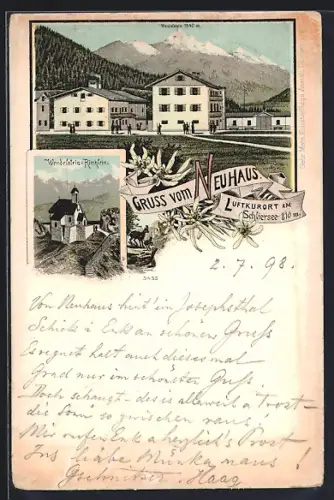 Wendelstein 1840 m.
Wendelstein-Kirchlein.
GRUSS VOM NEUHAUS
LUFTKURORT AM
Schliersee 810 m.
5455
2. 7. 98.
Von Neuhaus hint in Josephsthal
Schick i Enk an schönen Gruß
Es regnet halt auch diesesmal
Grad nur im schönsten Guß.
Noch schaugt - des is allweil a Trost -
die Sonn so zwischen raus,
Mir rufen Enk a herzlich's Prost
Ins liabe Münka naus!
Haag